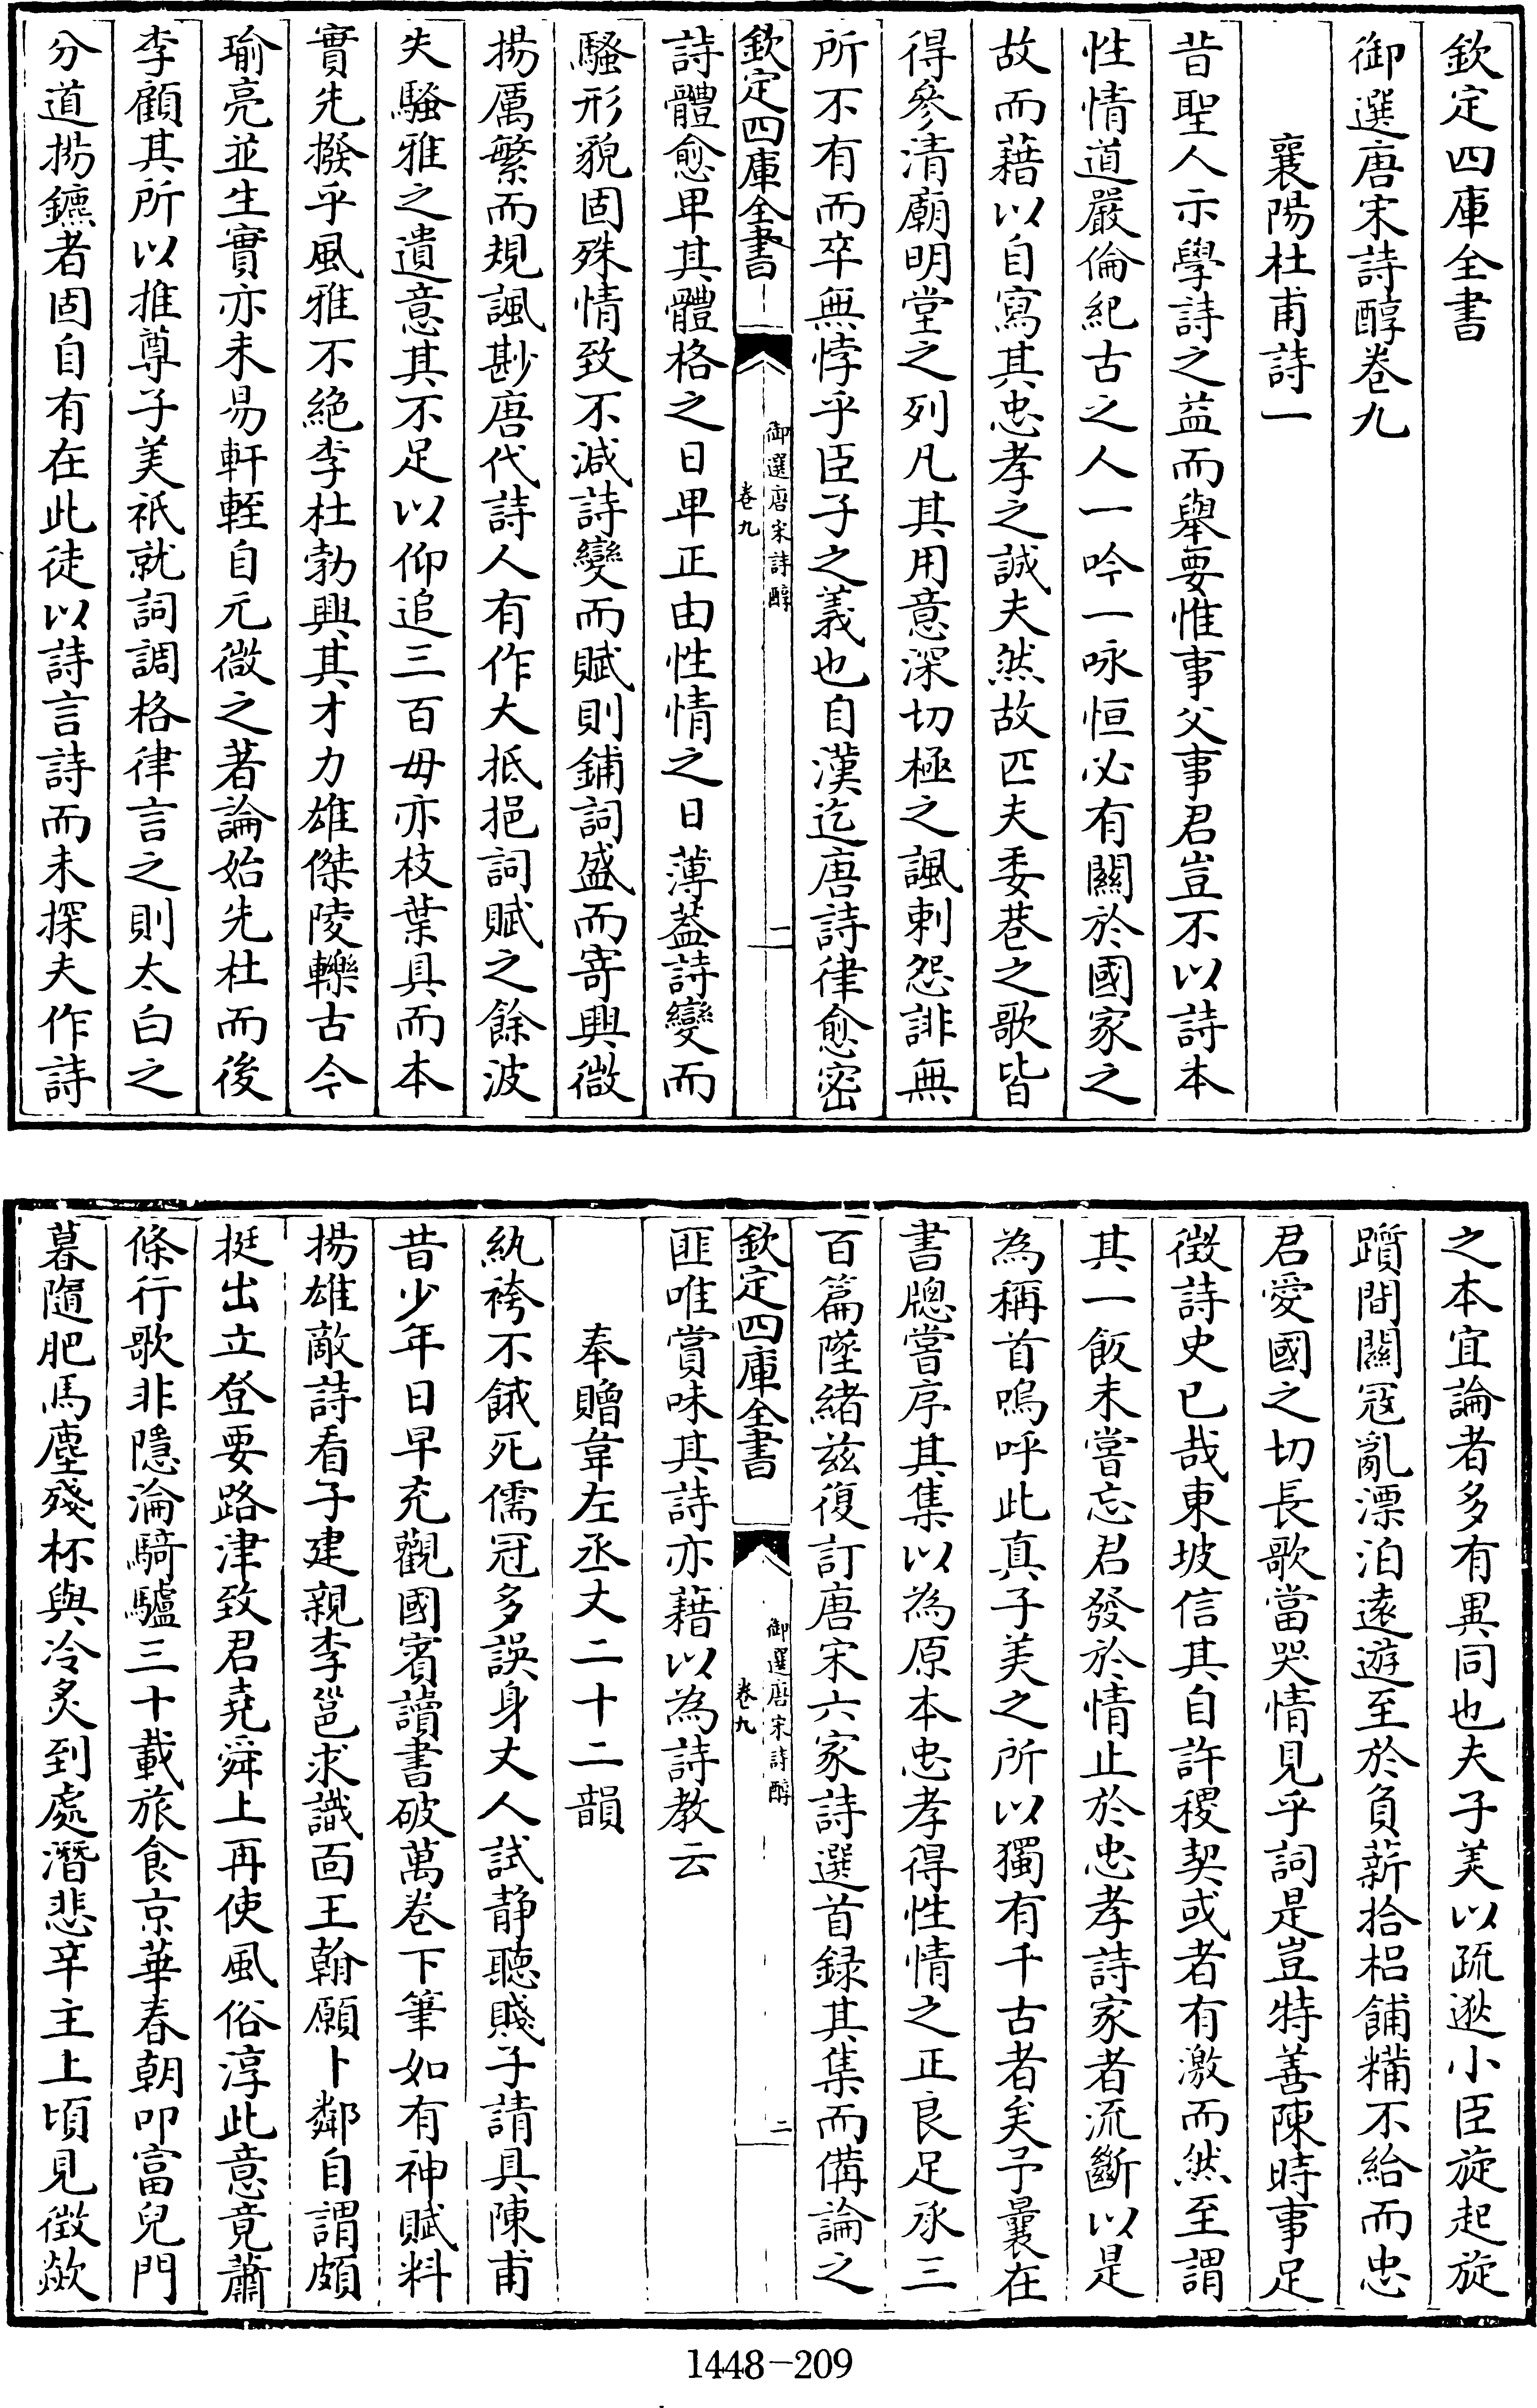 欽定四庫全書
御選唐宋詩醇卷九
襄陽杜甫詩一
昔聖人示學詩之益而舉要惟事父事君豈不以詩本
性情道嚴倫紀古之人一吟一咏恒必有關於國家之
故而藉以自寫其忠孝之誠夫然故匹夫委巷之歌皆
得參清廟明堂之列凡其用意深切極之諷刺怨誹無
所不有而卒無悖乎臣子之義也自漢迄唐詩律愈密
欽定四庫全書
御選唐宋詩醇
卷九
一
詩體愈卑其體格之日卑正由性情之日薄蓋詩變而
騷形貌固殊情致不減詩變而賦則鋪詞盛而寄興微
揚厲繁而規諷尠唐代詩人有作大抵挹詞賦之餘波
失騷雅之遺意其不足以仰追三百毋亦枝葉具而本
實先撥乎風雅不絕李杜勃興其才力雄傑陵轢古今
瑜亮並生實亦未易軒輊自元微之著論始先杜而後
李顧其所以推尊子美祇就詞調格律言之則太白之
分道揚鑣者固自有在此徒以詩言詩而未探夫作詩
之本宜論者多有異同也夫子美以疏逖小臣旋起旋
躓間關寇亂漂泊遠遊至於負薪拾梠餔糒不給而忠
君愛國之切長歌當哭情見乎詞是豈特善陳時事足
徵詩史已哉東坡信其自許稷契或者有激而然至謂
其一飯未嘗忘君發於情止於忠孝詩家者流斷以是
為稱首嗚呼此真子美之所以獨有千古者矣予曩在
書牕嘗序其集以為原本忠孝得性情之正良足承三
百篇墜緒茲復訂唐宋六家詩選首録其集而備論之
欽定四庫全書
御選唐宋詩醇
卷九
二
匪唯賞味其詩亦藉以為詩教云
奉贈韋左丞丈二十二韻
紈袴不餓死儒冠多誤身丈人試静聽賤子請具陳甫
昔少年日早充觀國賓讀書破萬卷下筆如有神賦料
揚雄敵詩看子建親李邕求識面王翰願卜鄰自謂頗
挺出立登要路津致君堯舜上再使風俗淳此意竟蕭
條行歌非隱淪騎驢三十載旅食京華春朝叩富兒門
暮隨肥馬塵殘杯與冷炙到處潛悲辛主上頃見徵歘
1448-209